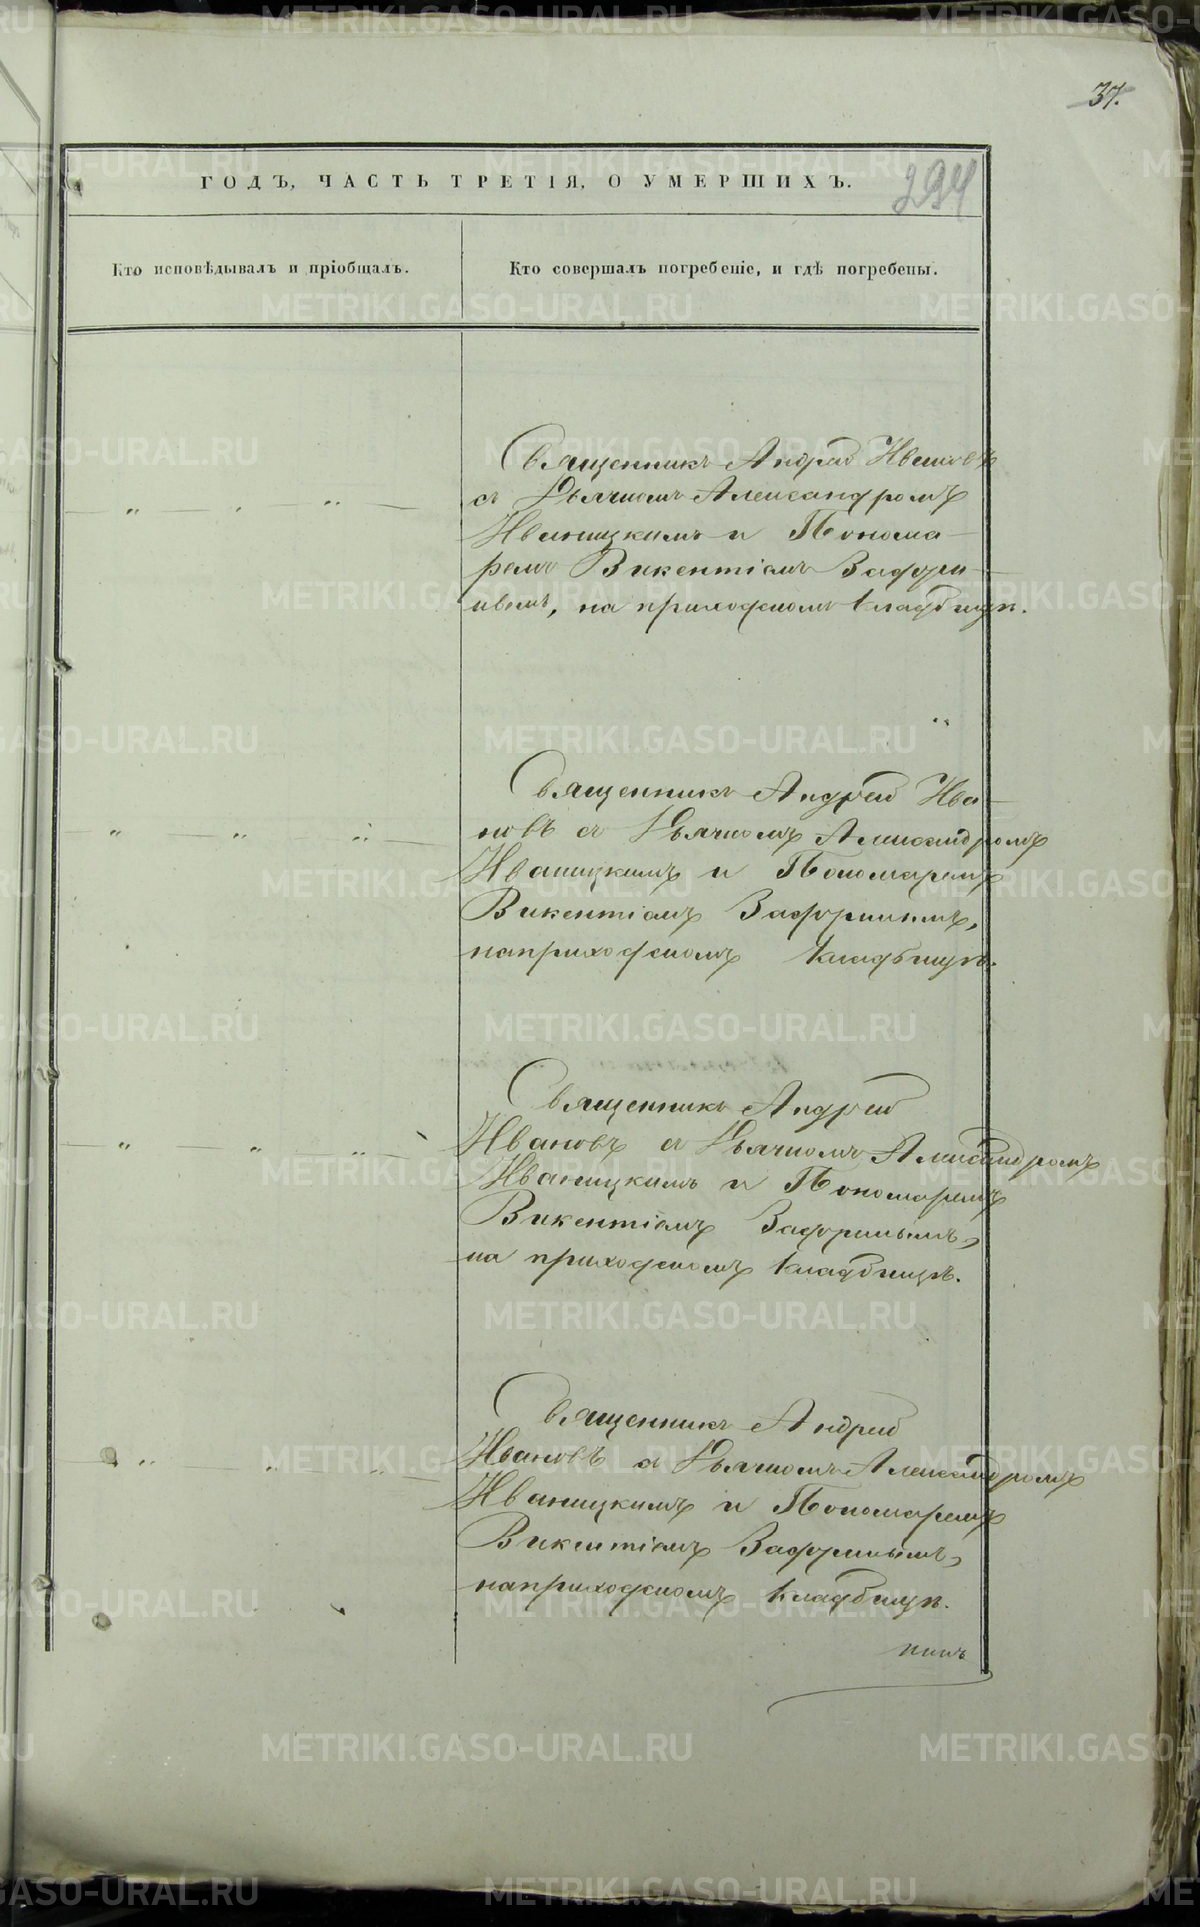 37.
ГОДЪ, ЧАСТЬ ТРЕТІЯ, О УМЕРШИХЪ.
294
Кто исповѣдывалъ и пріобщалъ.
Кто совершалъ погребеніе, и гдѣ погребены.
Священникъ Андрей Ивановъ
съ Дьячкомъ Александромъ
Иваницкимъ и Понома-
ремъ Викентіемъ
на приходскомъ кладбищѣ.
Священникъ Андрей Ива-
новъ съ Дьячкомъ Александромъ
Иваницкимъ и Пономаремъ
Викентіемъ
на приходскомъ кладбищѣ.
Священникъ Андрей
Ивановъ съ Дьячкомъ Александромъ
Иваницкимъ и Пономаремъ
Викентіемъ
на приходскомъ кладбищѣ.
Священникъ Андрей
Ивановъ съ Дьячкомъ Александромъ
Иваницкимъ и Пономаремъ
Викентіемъ
на приходскомъ кладбищѣ.
METRIKI.GASO-URAL.RU